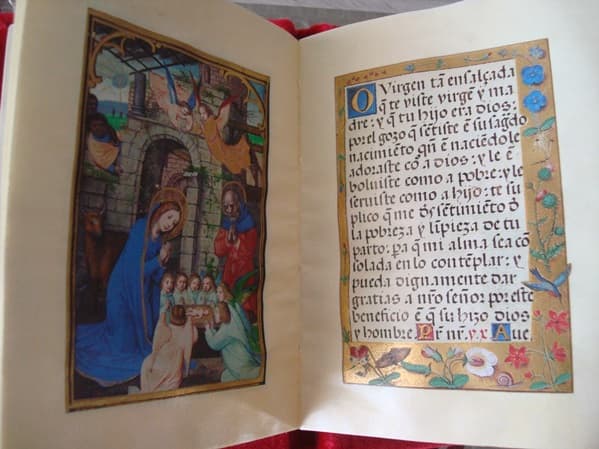 O Virgen tã ensalçada
q̃ te viste virgẽ y ma
dre: y q̃ tu hijo era dios:
por el gozo q̃ sẽtiste ẽ su sagdo
nacimiẽto qñ ẽ naciẽdo le
adoraste cõ a dios: y le ẽ
boluiste como a pobre: y le
seruiste como a hijo: te su
plico q̃ me des sẽtimiẽto d̃
la pobreza y lĩpieza de tu
parto: pa q̃ mi alma sea cõ
solada en lo contẽplar: y
pueda dignamente dar
gratias a nr̃o señor por este
beneficio ẽ q̃ su hizo dios
y hombre Pr̃ nr̃. xx Aue.